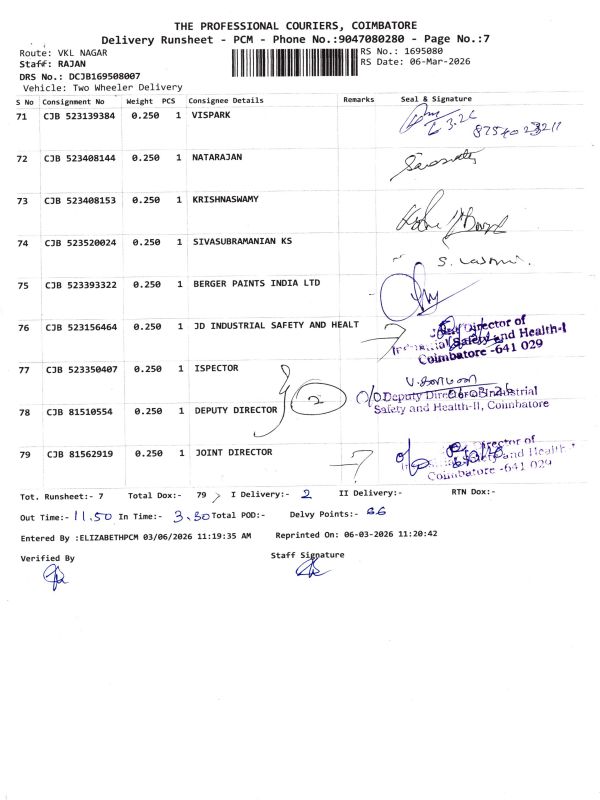 THE PROFESSIONAL COURIERS, COIMBATORE
Delivery Runsheet - PCM - Phone No.:9047080280 - Page No.:7
Route: VKL NAGAR
RS No.: 1695080
Staff: RAJAN
RS Date: 06-Mar-2026
DRS No.: DCJB169508007
Vehicle: Two Wheeler Delivery
S No Consignment No Weight PCS Consignee Details Remarks Seal & Signature
71 CJB 523139384 0.250 1 VISPARK
72 CJB 523408144 0.250 1 NATARAJAN
73 CJB 523408153 0.250 1 KRISHNASWAMY
74 CJB 523520024 0.250 1 SIVASUBRAMANIAN KS
S. Laxmi.
75 CJB 523393322 0.250 1 BERGER PAINTS INDIA LTD
76 CJB 523156464 0.250 1 JD INDUSTRIAL SAFETY AND HEALT
Director of
Safety and Health-I
Coimbatore -641 029
77 CJB 523350407 0.250 1 ISPECTOR
2
O/O Deputy Director of Industrial
Safety and Health-II, Coimbatore
78 CJB 81510554 0.250 1 DEPUTY DIRECTOR
79 CJB 81562919 0.250 1 JOINT DIRECTOR
Director of
Safety and Health-I
Coimbatore -641 029
Tot. Runsheet:- 7 Total Dox:- 79 I Delivery:- 2 II Delivery:- RTN Dox:-
Out Time:- 11.50 In Time:- 3.30 Total POD:- Delvy Points:- 66
Entered By :ELIZABETHPCM 03/06/2026 11:19:35 AM Reprinted On: 06-03-2026 11:20:42
Verified By
Staff Signature